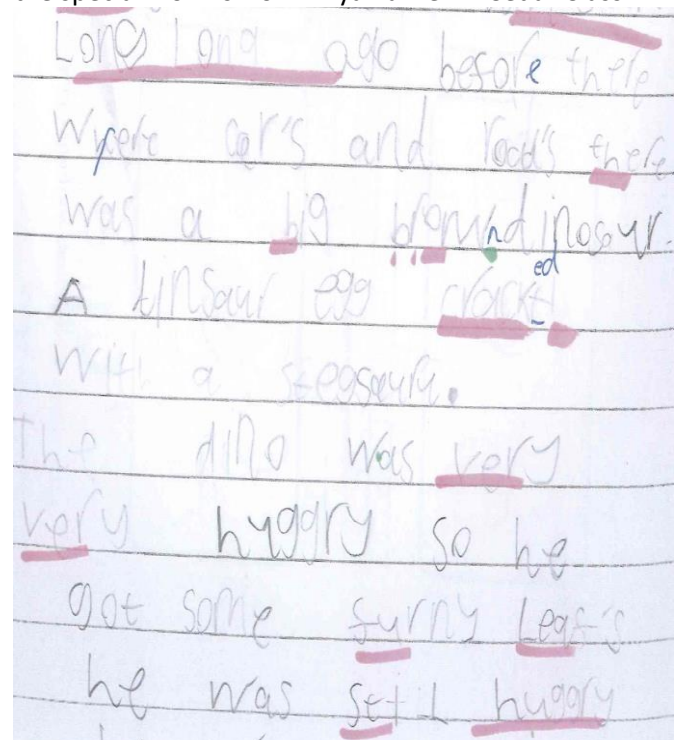 Long Long ago before there
where car's and road's there
was a big brown dinosaur.
A tinsaur egg crackted
with a stegsauru.
the dino was very
very huggry so he
got some furny Leaf's
he was setl huggry